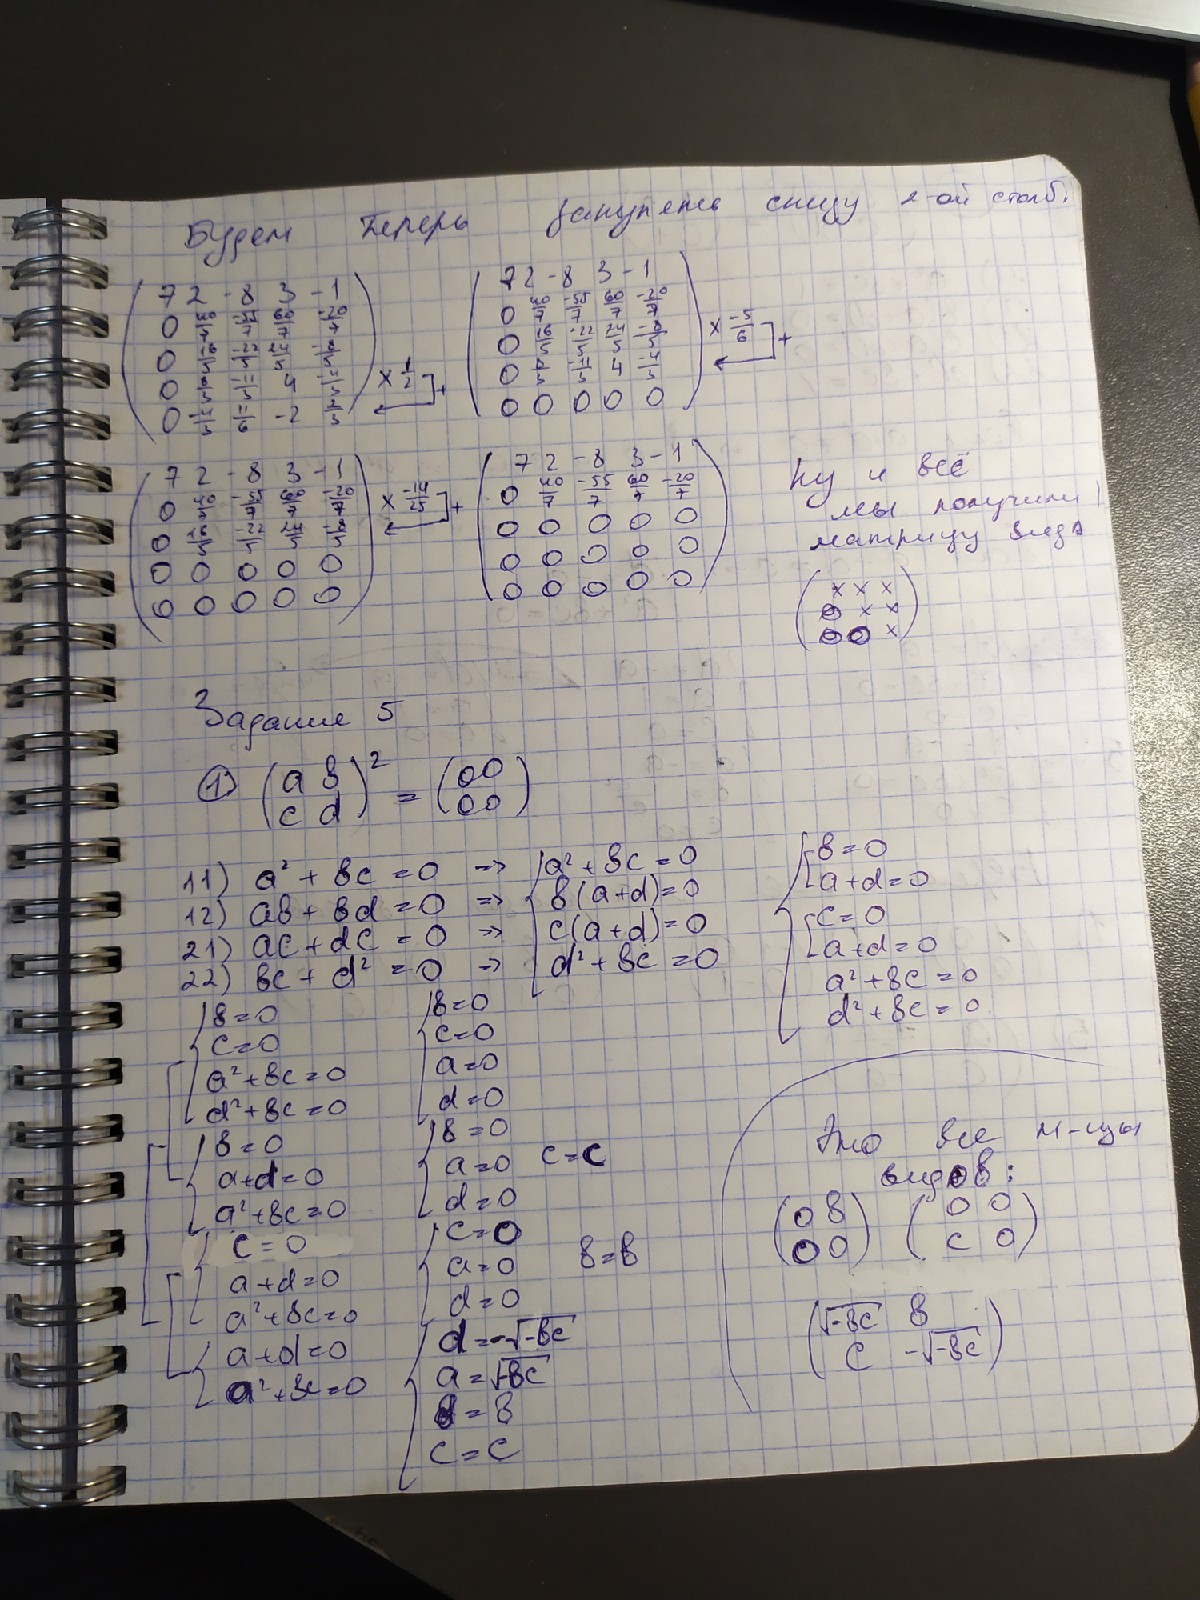 Будем теперь занулять снизу 2-ой столб.
7 2 -8 3 -1
0 40/7 -55/7 60/7 -20/7
0
0 4
0 -2
× 1/2 +
7 2 -8 3 -1
0 40/7 -55/7 60/7 -20/7
0 16/5 -22/5 24/5
0 4
0 0 0 0 0
× -5/6 +
7 2 -8 3 -1
0 40/7 -55/7 60/7 -20/7
0 16/5 -22/5 24/5
0 0 0 0 0
0 0 0 0 0
× -14/25 +
7 2 -8 3 -1
0 40/7 -55/7 60/7 -20/7
0 0 0 0 0
0 0 0 0 0
0 0 0 0 0
Ну и всё
мы получили
матрицу вида
× × ×
0 × ×
0 0 ×
Задание 5
① (a b)² = (0 0)
(c d) (0 0)
11) a² + bc = 0 => a² + bc = 0
12) ab + bd = 0 => b(a+d) = 0
21) ac + dc = 0 => c(a+d) = 0
22) bc + d² = 0 => d² + bc = 0
b = 0
a+d = 0
c = 0
a+d = 0
a² + bc = 0
d² + bc = 0
b = 0
c = 0
a² + bc = 0
d² + bc = 0
b = 0
a+d = 0
a² + bc = 0
c = 0
a+d = 0
a² + bc = 0
a+d = 0
a² + bc = 0
b = 0
c = 0
a = 0
d = 0
b = 0
a = 0 c = c
d = 0
c = 0
a = 0 b = b
d = 0
d = -√-bc
a = √-bc
b = b
c = c
Это все м-цы
видов:
(0 b) (0 0)
(0 0) (c 0)
(√-bc b)
(c -√-bc)